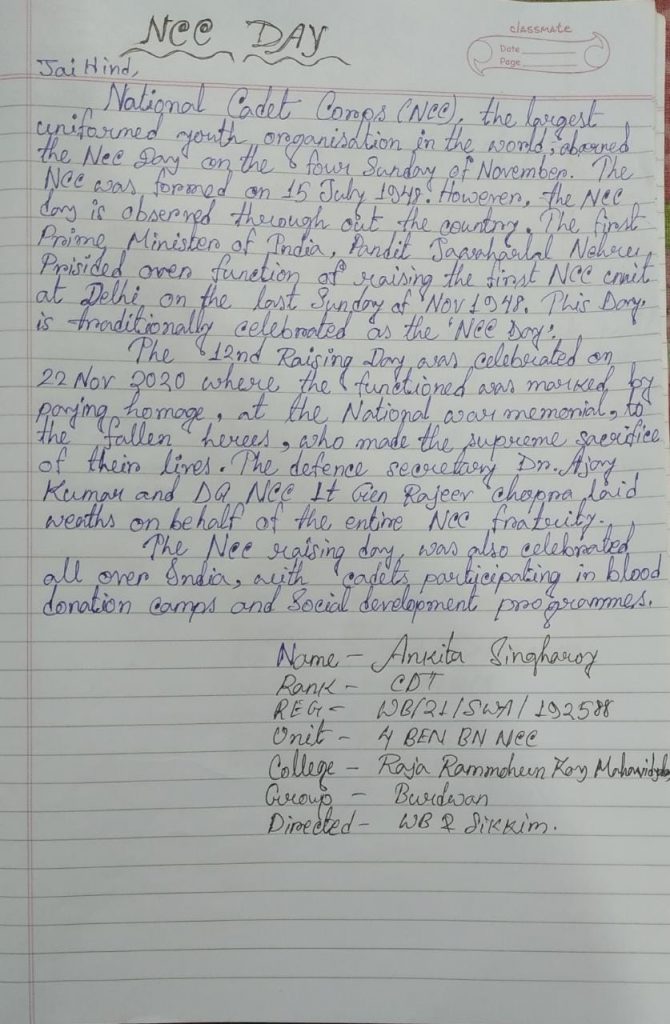 NCC DAY
classmate
Date
Page
Jai Hind,
National Cadet Corps (NCC), the largest
uniformed youth organisation in the world, observed
the Ncc Day on the four Sunday of November. The
NCC was formed on 15 July 1948. However, the NCC
day is observed through out the country. The first
Prime Minister of India, Pandit Jawaharlal Nehru,
Prisided over function of raising the first NCC unit
at Delhi, on the last Sunday of Nov 1948. This Day,
is traditionally celebrated as the 'NCC Day'.
The 12nd Raising Day was celebrated on
22 Nov 2020 where the functioned was marked by
paying homage, at the National war memorial, to
the fallen herees, who made the supreme sacrifice
of their lives. The defence secretary Dr. Ajay
Kumar and DG NCC Lt Gen Rajeev chopra laid
weaths on behalf of the entire NCC fratrity.
The Ncc raising day, was also celebrated
all over India, with cadets participating in blood
donation camps and Social development programmes.
Name - Ankita Singharoy
Rank - CDT
REG - WB/21/SWA/192588
Unit - 4 BEN BN NCC
College - Raja Rammohun Roy Mahavidyalay
Group - Burdwan
Directed - WB & Sikkim.